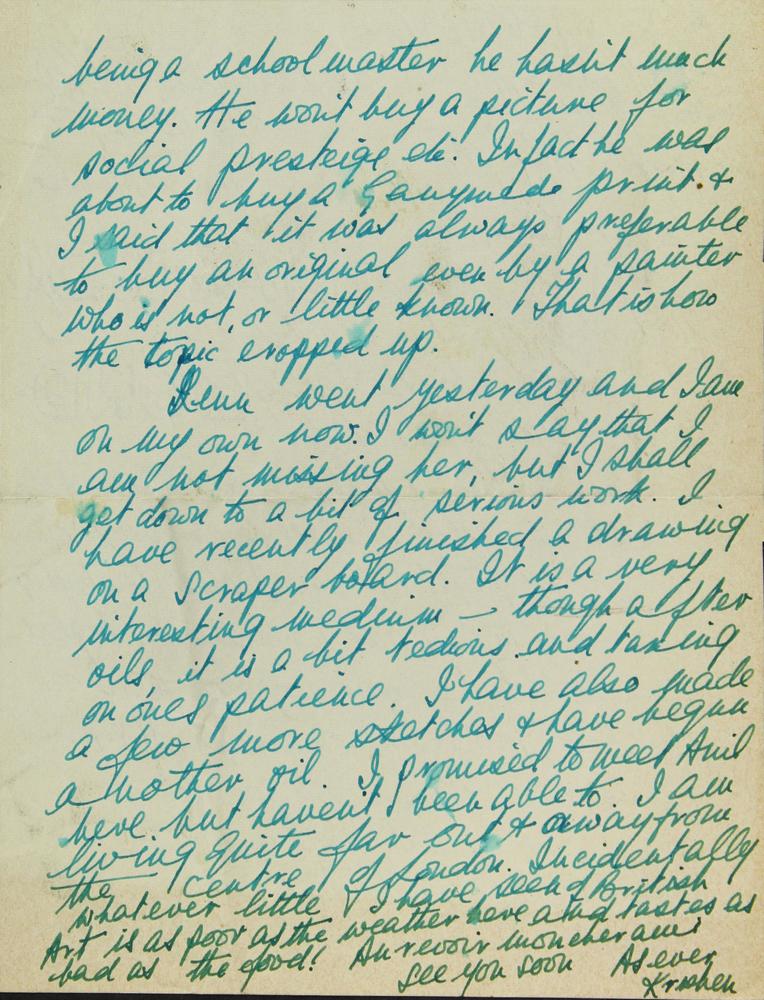 being a schoolmaster he hasn't much
money. He won't buy a picture for
social presteige etc. In fact he was
about to buy a Ganymede print &
I said that it was always preferable
to buy an original even by a painter
who is not, or little known. That is how
the topic cropped up.
Renu went yesterday and I am
on my own now. I won't say that I
am not missing her, but I shall
get down to a bit of serious work. I
have recently finished a drawing
on a scraper board. It is a very
interesting medium – though after
oils, it is a bit tedious and taxing
on ones patience. I have also made
a few more sketches & have begun
another oil. I promised to meet Anil
here but haven't been able to. I am
living quite far out & away from
the centre of London. Incidentally
whatever little I have seen of British
Art is as poor as the weather here and tastes as
bad as the food! Au revoir mon cher ami
See you soon As ever
Krishen